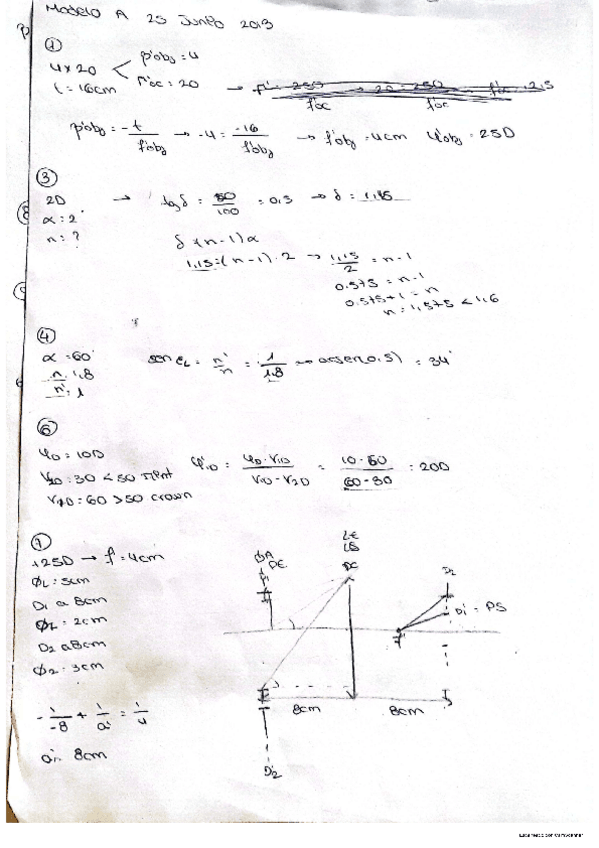 Modelo A 25 Junio 2013
①
4x20 β'obj = 4
Γ'oc = 20
t = 16cm
β'obj = -t/f'obj → -4 = -16/f'obj → f'obj = 4cm φ'obj = 25D
③
2D → tag δ = /100 = 0.3 → δ = 1.15
α = 2°
n = ?
δ = (n-1)α
1.15 = (n-1)·2 → 1.15/2 = n-1
0.575 = n-1
0.575+1 = n
n = 1,575 < 1.6
④
α = 60°
n = 1.8
n' = 1
sen εL = n'/n = 1/1.8 → arcsen(0.5) = 34°
⑥
φD = 10D
V2D = 30 < 50 flint
V1D = 60 > 50 crown
φ1D = φD·V1D/V1D-V2D = 10·60/60-30 = 20D
⑦
+25D → f' = 4cm
ϕL = 5cm
D1 a 8cm
ϕ1 = 2cm
D2 a 8cm
ϕ2 = 3cm
-1/-8 + 1/a' = 1/4
a' = 8cm
DA
PE
LE
LS
DC
D2
D1' = PS
F'
8cm
8cm
D2'